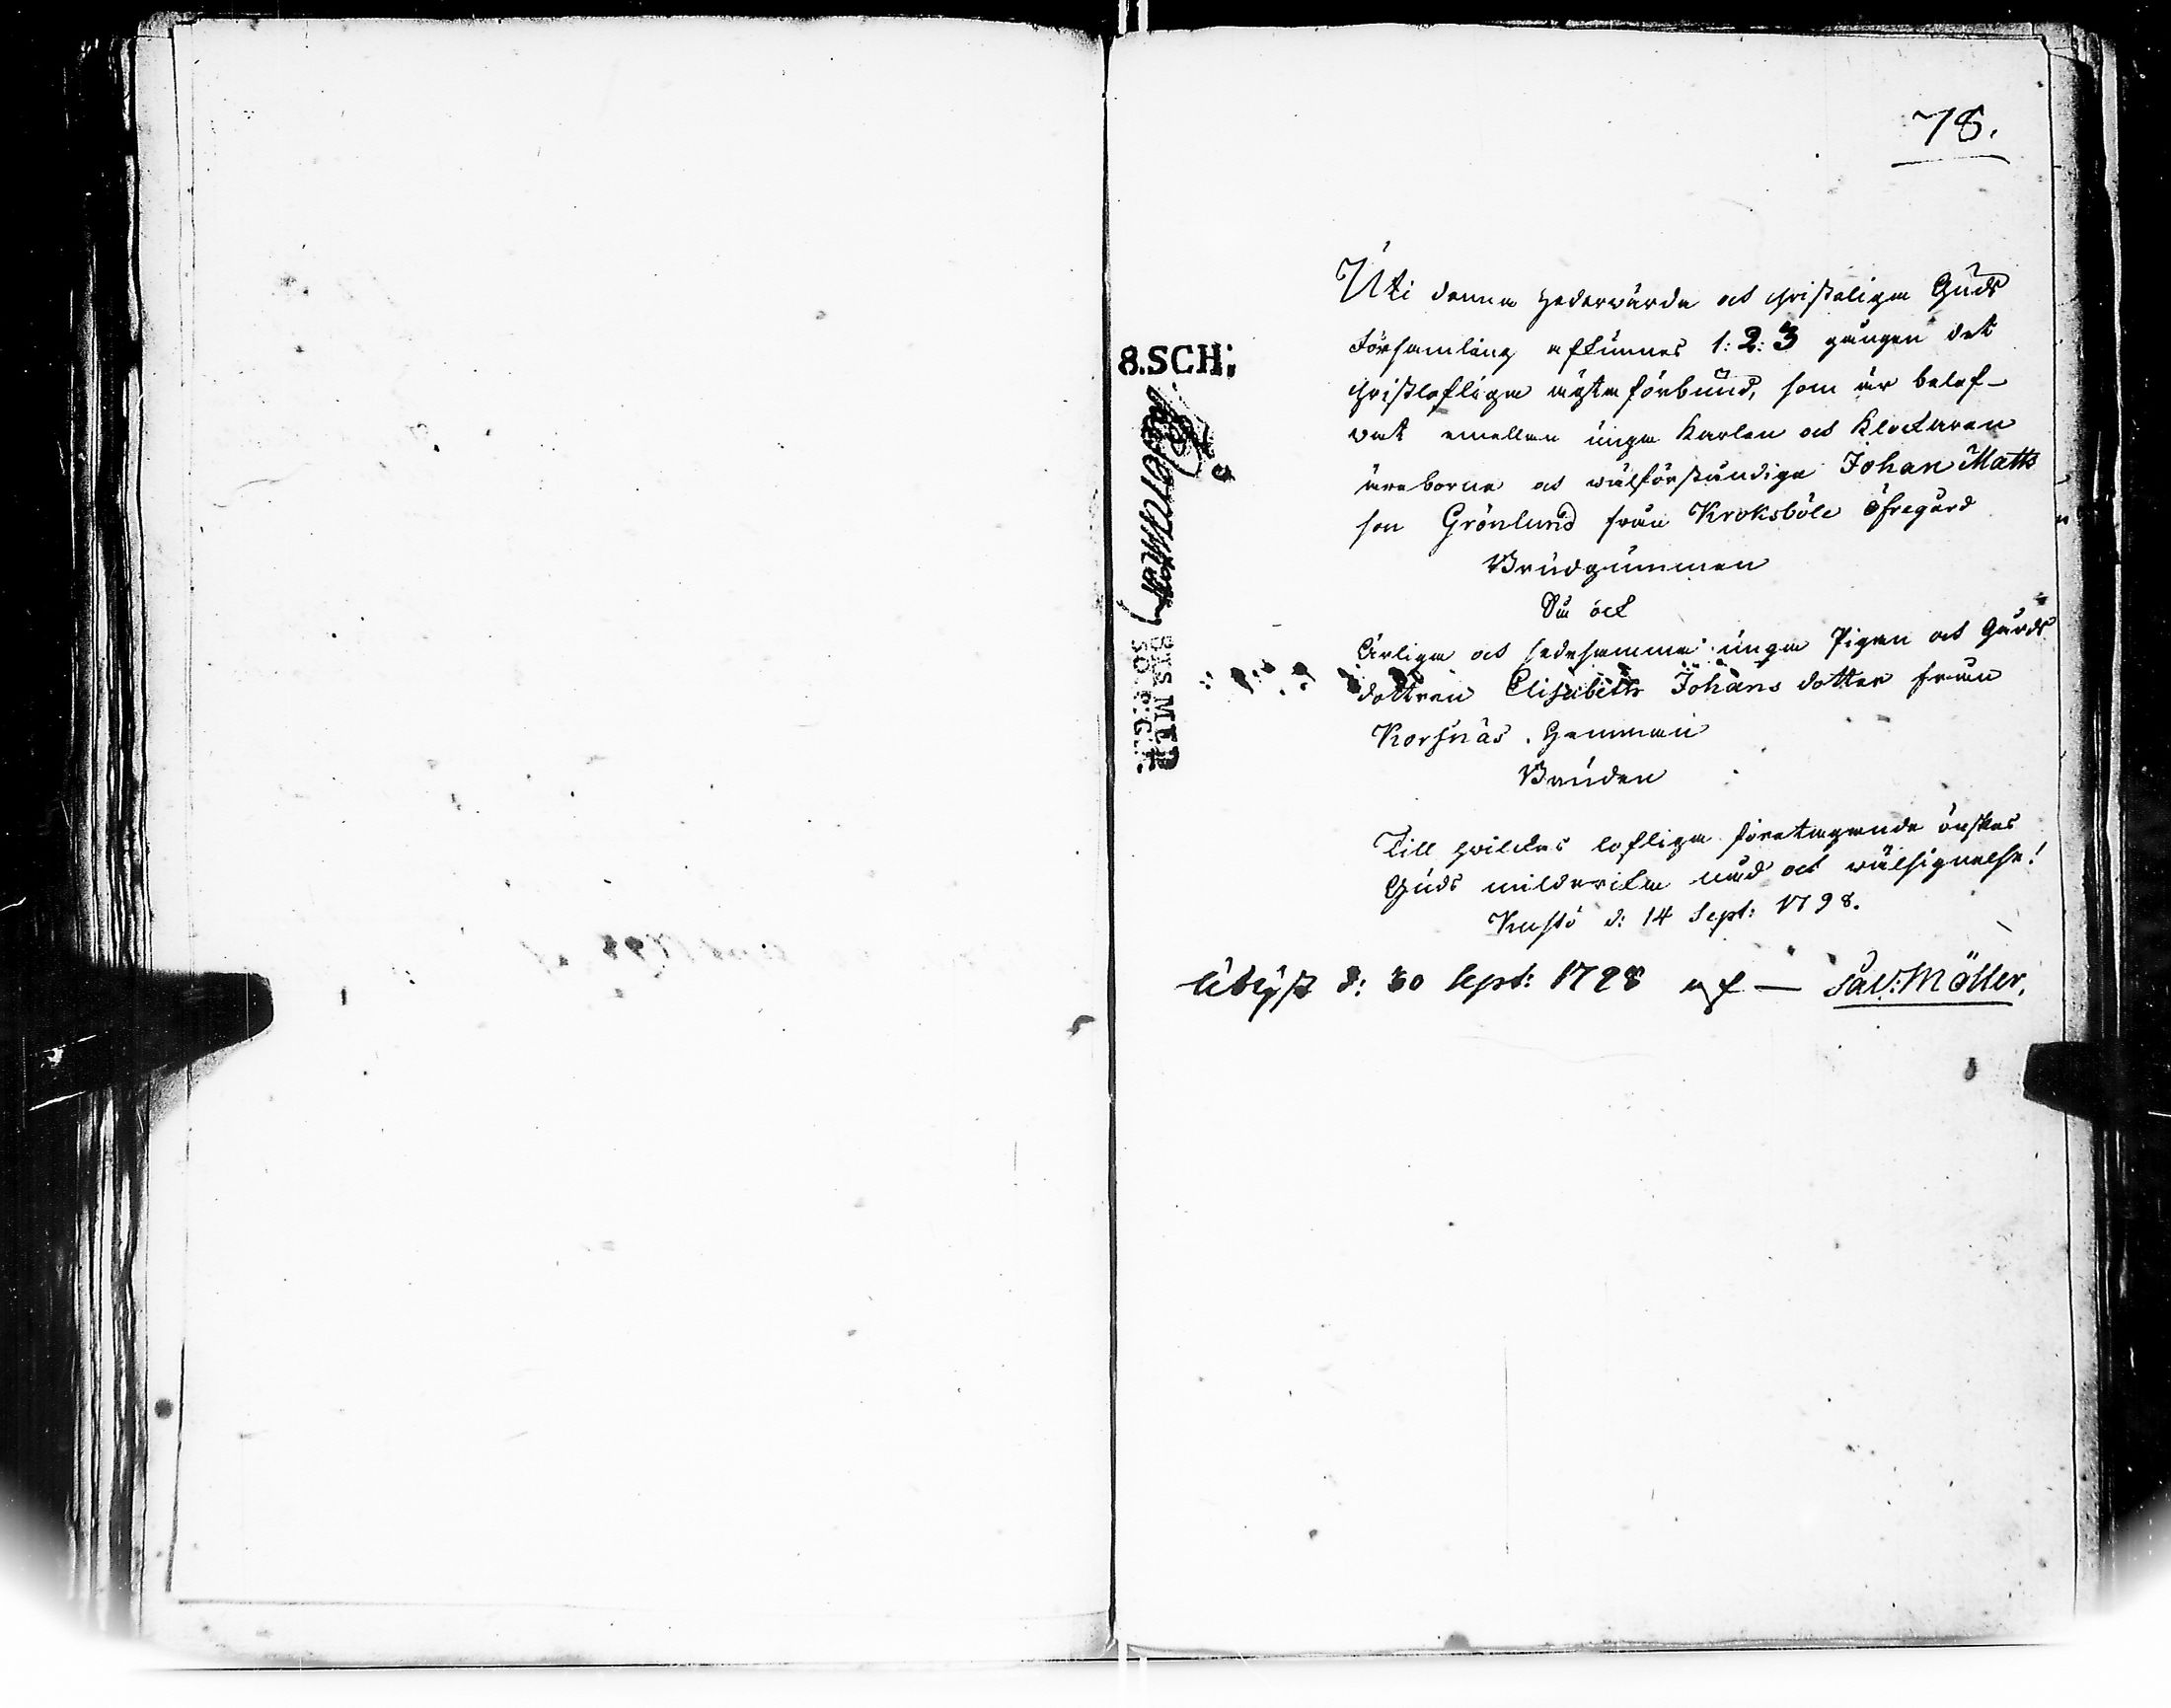 78.
Uti denna hedervärda och christeliga Guds
Församling afkunnas 1: 2: 3 gången det
christlofliga ägta förbund, som är belef-
vat emellan unga Karlen och Klockaren
äreborne och wälförståndige Johan Matts
son Grönlund från Kroksböle öfregård
Brudgummen
Så ock
Ärliga och sedesamma unga Pigan och Gårds
dottren Elisabeth Johans dotter från
Korsnäs Hemman
Bruden
Till hvilkas lofliga företagande önskas
Guds milderika nåd och wälsignelse!
d: 14 Sept: 1798.
Utlyst d: 30 Sept: 1798 af — Sal: Möller.
8.SCH: